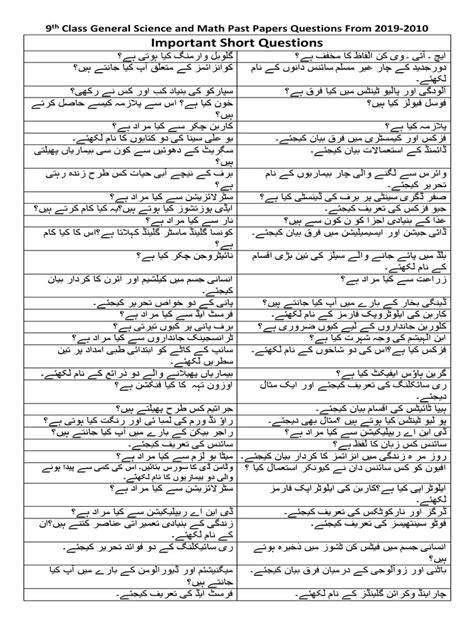 9th Class General Science and Math Past Papers Questions From 2019-2010
Important Short Questions
ایچ - آئی - وی کن الفاظ کا مخفف ہے؟
گلوبل وارمنگ کیا ہوتی ہے؟
دورجدید کے چار غیر مسلم سائنس دانوں کے نام لکھئے۔
کوانزائمز کے متعلق آپ کیا جانتے ہیں؟
آلودگی اور پالیو ٹینٹس میں کیا فرق ہے؟
سپارکو کی بنیاد کب اور کس نے رکھی؟
فوسل فیولز کیا ہیں؟
خون کیا ہے؟ اس سے پلازمہ کیسے حاصل کرتے ہیں؟
پلازمہ کیا ہے؟
کاربن چکر سے کیا مراد ہے؟
فزکس اور کیمسٹری میں فرق بیان کیجئے۔
بو علی سینا کی دو کتابوں کا نام لکھئے۔
ڈائمنڈ کے استعمالات بیان کیجئے۔
سگریٹ کے دھوئیں سے کون سی بیماریاں پھیلتی ہیں؟
وائرس سے لگنے والی چار بیماریوں کے نام تحریر کیجئے۔
برف کے نیچے آبی حیات کس طرح زندہ رہتی ہے؟
صفر ڈگری سینٹی پر برف کی ڈینسٹی کیا ہے؟
سٹرلائزیشن سے کیا مراد ہے؟
جیو فزکس کی تعریف کیجئے۔
اینڈی یوزتشوز کیا ہوتے ہیں؟یہ کیا کام کرتے ہیں؟
غذا کے بنیادی اجزا کو ن کون سے ہیں؟
سنار سے کیا مراد ہے؟
ڈائی جیشن اور ایسیمیلیشن میں فرق بیان کیجئے۔
کونسا گلینڈ ماسٹر گلینڈ کہلاتا ہے؟اس کا کیا کام ہے؟
بلڈ میں پائے جانے والے سیلز کی تین بڑی اقسام کے نام لکھئے۔
نائیٹروجن چکر کیا ہے؟
زراعت سے کیا مراد ہے؟
انسانی جسم میں کیلشیم اور آئرن کا کردار بیان کیجئے۔
ڈینگی بخار کے بارے میں آپ کیا جانتے ہیں؟
پانی کے دو خواص تحریر کیجئے۔
کاربن کی ایلوٹروپک فارمز کے نام لکھئے۔
فرسٹ ایڈ سے کیا مراد ہے؟
کلوربن جانداروں کے لیے کیوں ضروری ہے؟
برف پانی پر کیوں تیرتی ہے؟
ابن الہیشم کی وجہ شہرت کیا ہے؟
ٹرانسجینک جانداروں سے کیا مراد ہے؟
فزکس کیا ہے؟اس کی دو شاخوں کے نام لکھئے۔
سانپ کے کاٹے کو ابتدائی طبی امداد پر تین سطریں لکھئے۔
گرین ہاؤس ایفیکٹ کیا ہے؟
بیماریاں پھیلانے والے دو ذرائع کے نام لکھئے۔
ری سائکلنگ کی تعریف کیجئے اور ایک مثال دیجئے۔
اوزون تہہ کا کیا فنکشن ہے؟
ہیپا ٹائیٹس کی اقسام بیان کیجئے۔
جراثیم کس طرح پھیلتے ہیں؟
پو لیو ٹینٹس کیا ہوتے ہیں؟مثال بھی دیجئے۔
راؤ نڈ ورم کی لمبا ئی اور رنگت کیا ہوتی ہے؟
ڈی این اے ریپلیکیشن سے کیا مراد ہے؟
راجر بیکن کے بارے میں آپ کیا جانتے ہیں؟
سائنس کس زبان کا لفظ ہے؟
سائنس کی تعریف کیجئے۔
روز مر ہ زندگی میں انزائمز کا کردار بیان کیجئے۔
میٹا بو لزم سے کیا مراد ہے؟
افیون کو کس سائنس دان نے کیونکر استعمال کیا ؟
وٹامن ڈی کا سورس بتائیں۔ اس کی کمی سے پیدا ہونے والی دو بیماریوں کے نام لکھئے۔
ایلوٹراپی کیا ہے؟کاربن کی ایلوٹر اپک فارمز کے نام لکھئے۔
سٹرلائزیشن سے کیا مراد ہے؟
ڈرگز اور نارکوٹکس کی تعریف کیجئے۔
ڈی این اے ریپلیکیشن سے کیا مراد ہے؟
فوٹو سینتھیسز کی تعریف کیجئے۔
زندگی کے بنیادی تعمیراتی عناصر کتنے ہیں؟ان کے نام لکھئے۔
انسانی جسم میں فیٹس کن ٹشوز میں ذخیرہ ہوتے ہیں؟
ری سائیکلنگ کے دو فوائد تحریر کیجئے۔
باٹنی اور زوآلوجی کے درمیان فرق بیان کیجئے۔
میگنیشئم اور ڈیورالومن کے بارے میں آپ کیا جانتے ہیں؟
چار اینڈ وکرائن گلینڈز کے نام لکھئے۔
فرسٹ ایڈ کی تعریف کیجئے۔